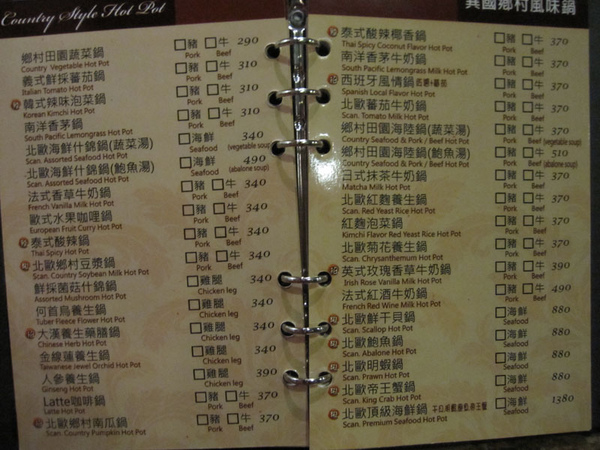 Country Style Hot Pot
鄉村田園蔬菜鍋 □豬 □牛 290
Country Vegetable Hot Pot Pork Beef
義式鮮採蕃茄鍋 □豬 □牛 310
Italian Tomato Hot Pot Pork Beef
韓式辣味泡菜鍋 □豬 □牛 310
Korean Kimchi Hot Pot Pork Beef
南洋香茅鍋 □豬 □牛 310
South Pacific Lemongrass Hot Pot Pork Beef
北歐海鮮什錦鍋(蔬菜湯) □海鮮 340
Scan. Assorted Seafood Hot Pot Seafood (vegetable soup)
北歐海鮮什錦鍋(鮑魚湯) □海鮮 490
Scan. Assorted Seafood Hot Pot Seafood (abalone soup)
法式香草牛奶鍋 □豬 □牛 340
French Vanilla Milk Hot Pot Pork Beef
歐式水果咖哩鍋 □豬 □牛 340
European Fruit Curry Hot Pot Pork Beef
泰式酸辣鍋 □豬 □牛 340
Thai Spicy Hot Pot Pork Beef
北歐鄉村豆漿鍋 □豬 □牛 340
Scan. Country Soybean Milk Hot Pot Pork Beef
鮮採菌菇什錦鍋 □雞腿 340
Assorted Mushroom Hot Pot Chicken leg
何首烏養生鍋 □雞腿 340
Tuber Fleece Flower Hot Pot Chicken leg
大漢養生藥膳鍋 □雞腿 340
Chinese Herb Hot Pot Chicken leg
金線蓮養生鍋 □雞腿 340
Taiwanese Jewel Orchid Hot Pot Chicken leg
人參養生鍋 □雞腿 390
Ginseng Hot Pot Chicken leg
Latte咖啡鍋 □豬 □牛 370
Latte Hot Pot Pork Beef
北歐鄉村南瓜鍋 □豬 □牛 370
Scan. Country Pumpkin Hot Pot Pork Beef
異國鄉村風味鍋
泰式酸辣椰香鍋 □豬 □牛 370
Thai Spicy Coconut Flavor Hot Pot Pork Beef
南洋香茅牛奶鍋 □豬 □牛 370
South Pacific Lemongrass Milk Hot Pot Pork Beef
西班牙風情鍋 □豬 □牛 370
Spanish Local Flavor Hot Pot Pork Beef
北歐蕃茄牛奶鍋 □豬 □牛 370
Scan. Tomato Milk Hot Pot Pork Beef
鄉村田園海陸鍋(蔬菜湯) □豬 □牛 370
Country Seafood & Pork / Beef Hot Pot Pork Beef (vegetable soup)
鄉村田園海陸鍋(鮑魚湯) □豬 □牛 510
Country Seafood & Pork / Beef Hot Pot Pork Beef (abalone soup)
日式抹茶牛奶鍋 □豬 □牛 370
Matcha Milk Hot Pot Pork Beef
北歐紅麴養生鍋 □豬 □牛 370
Scan. Red Yeast Rice Hot Pot Pork Beef
紅麴泡菜鍋 □豬 □牛 370
Kimchi Flavor Red Yeast Rice Hot Pot Pork Beef
北歐菊花養生鍋 □豬 □牛 370
Scan. Chrysanthemum Hot Pot Pork Beef
英式玫瑰香草牛奶鍋 □豬 □牛 390
Irish Rose Vanilla Milk Hot Pot Pork Beef
法式紅酒牛奶鍋 □豬 □牛 490
French Red Wine Milk Hot Pot Pork Beef
北歐鮮干貝鍋 □海鮮 880
Scan. Scallop Hot Pot Seafood
北歐鮑魚鍋 □海鮮 880
Scan. Abalone Hot Pot Seafood
北歐明蝦鍋 □海鮮 880
Scan. Prawn Hot Pot Seafood
北歐帝王蟹鍋 □海鮮 880
Scan. King Crab Hot Pot Seafood
北歐頂級海鮮鍋 □海鮮 1380
Scan. Premium Seafood Hot Pot Seafood